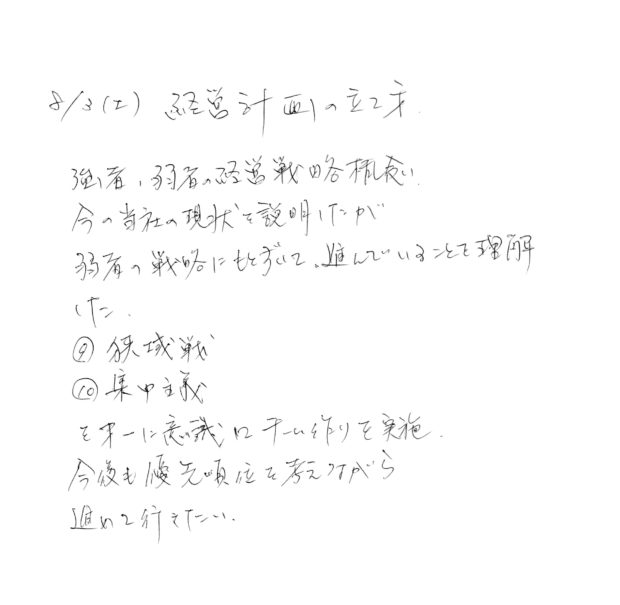 8/3(土) 経営計画の立て方.
強者,弱者の経営戦略各構成い.
今の当社の現状を説明したが
弱者の戦略にもとずいて、進んでいることを理解
した.
⑨ 狭域戦
⑩ 集中主義
を第一に意識しチーム作りを実施.
今後も優先順位を考えながら
進めて行きたい.